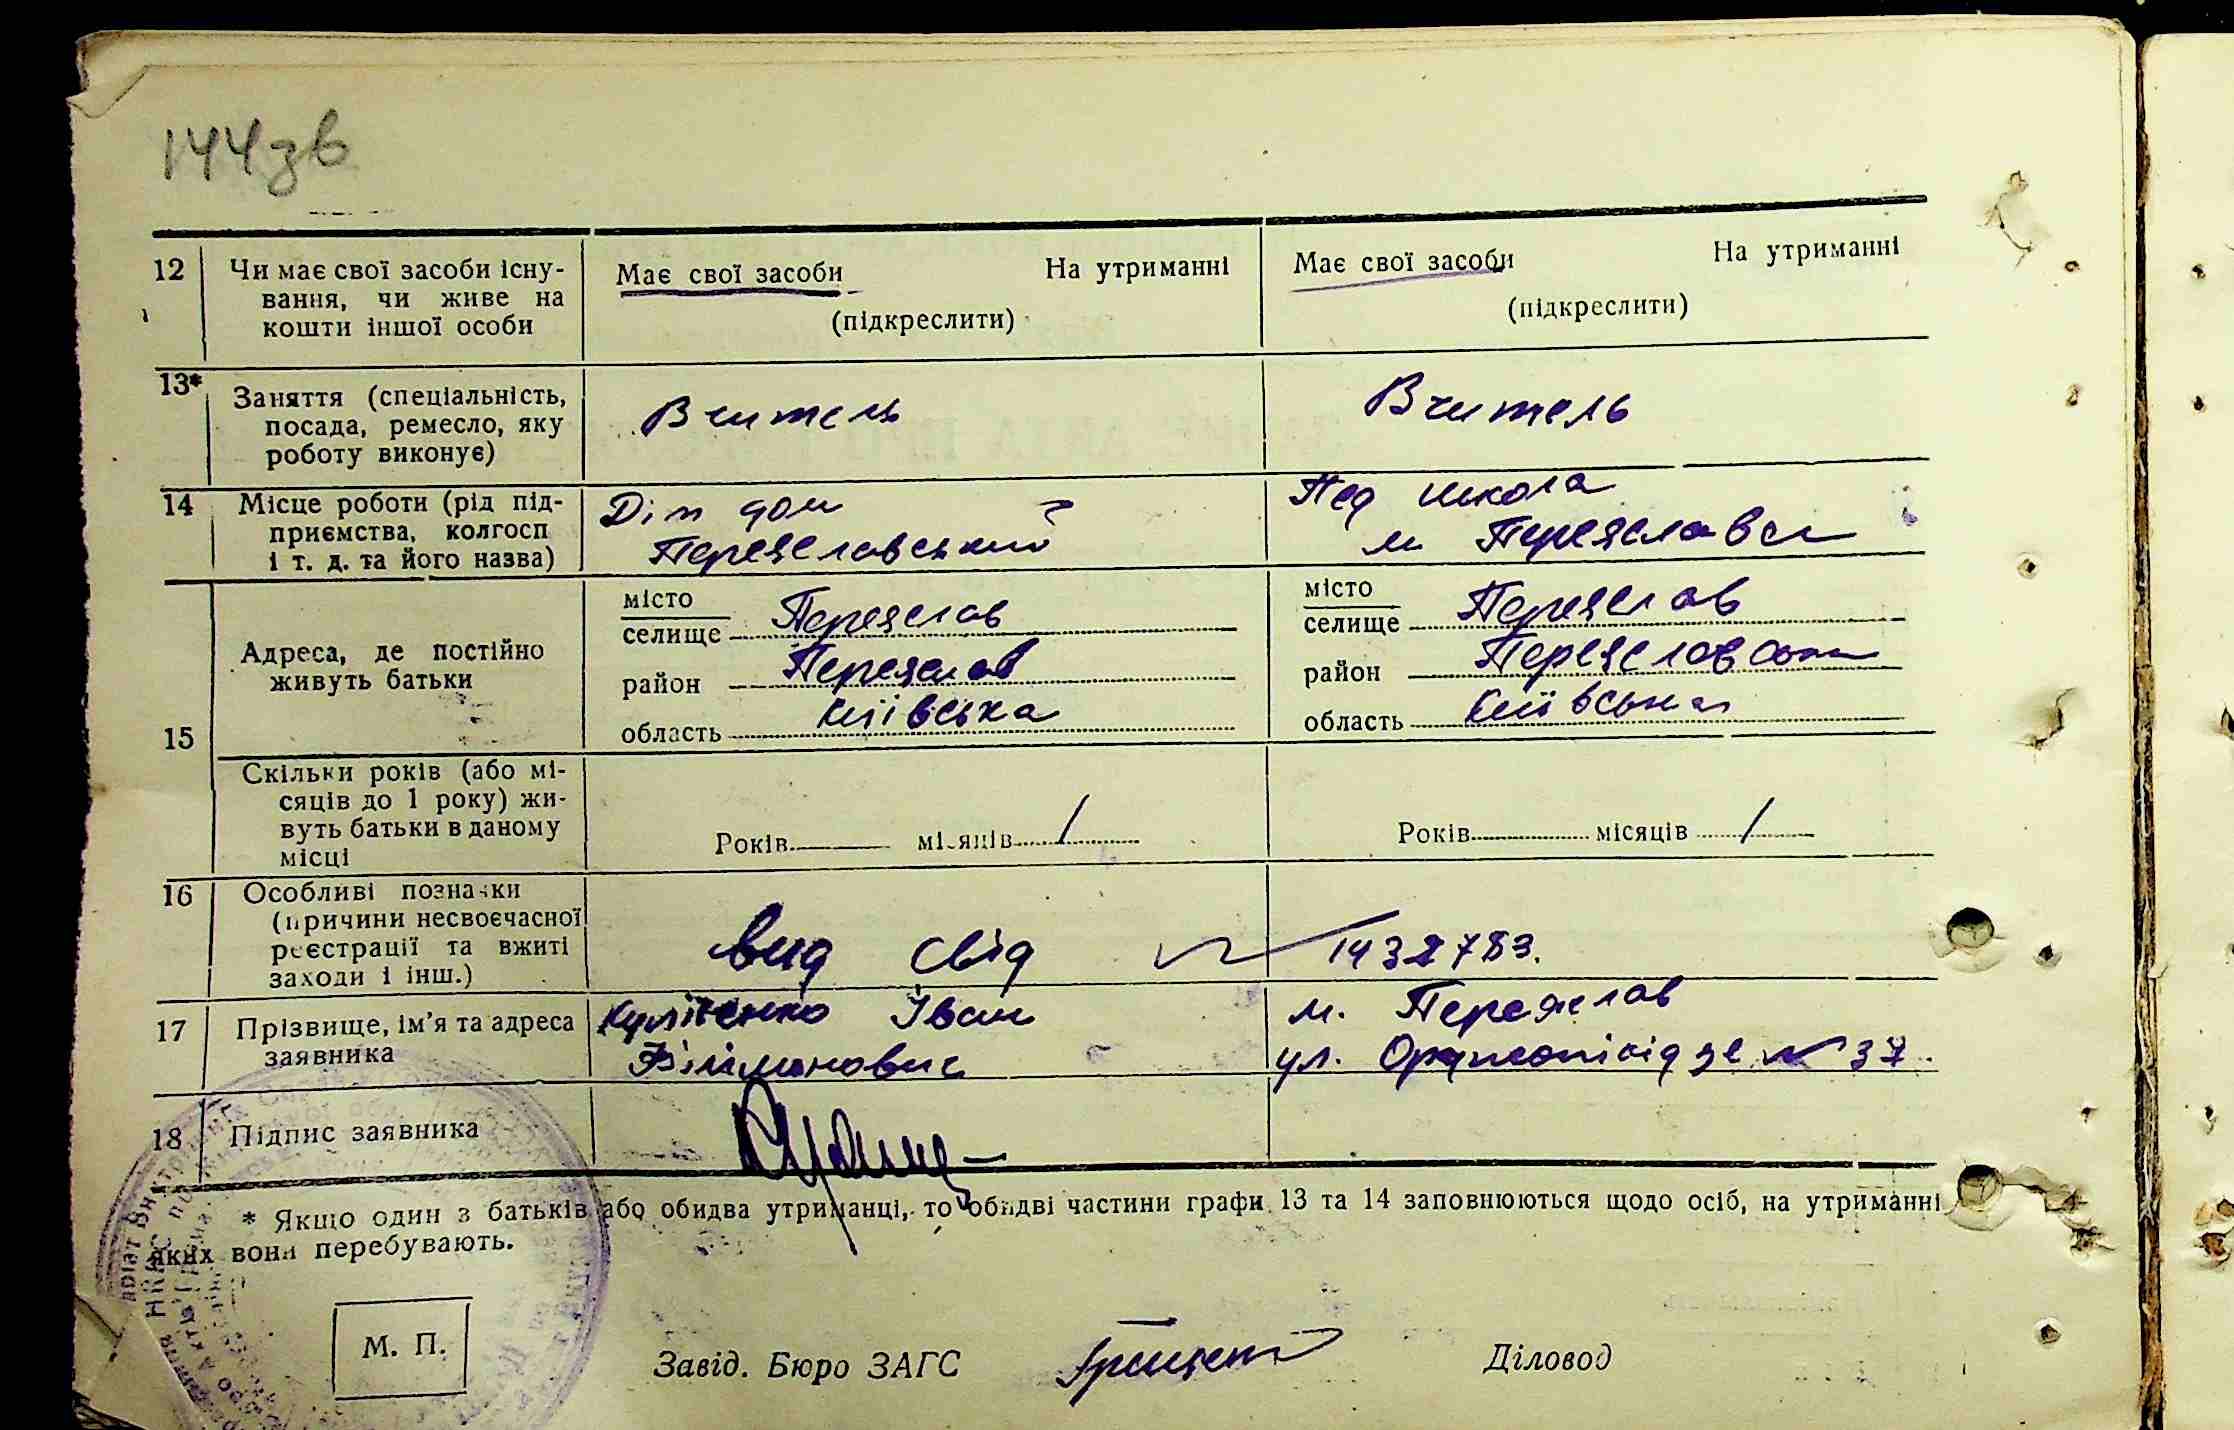 144зв
12 Чи має свої засоби існу- Має свої засоби На утриманні Має свої засоби На утриманні
вання, чи живе на
кошти іншої особи (підкреслити) (підкреслити)
13* Заняття (спеціальність,
посада, ремесло, яку Вчитель Вчитель
роботу виконує)
14 Місце роботи (рід під- Діт дом Пед школа
приємства, колгосп Переяславський м Переяслава
і т. д. та його назва)
15 Адреса, де постійно
живуть батьки
місто
селище Переяслав
район Переяслав
область Київська
місто
селище Переяслав
район
область Київська
Скільки років (або мі-
сяців до 1 року) жи-
вуть батьки в даному Років місяців 1 Років місяців 1
місці
16 Особливі позначки
(причини несвоєчасної
реєстрації та вжиті вид свід № 1432783.
заходи і інш.)
17 Прізвище, ім'я та адреса Іван м. Переяслав
заявника ул. Орджонікідзе № 37.
18 Підпис заявника
* Якщо один з батьків або обидва утриманці, то обидві частини графи 13 та 14 заповнюються щодо осіб, на утриманні
яких вони перебувають.
М. П. Завід. Бюро ЗАГС Діловод